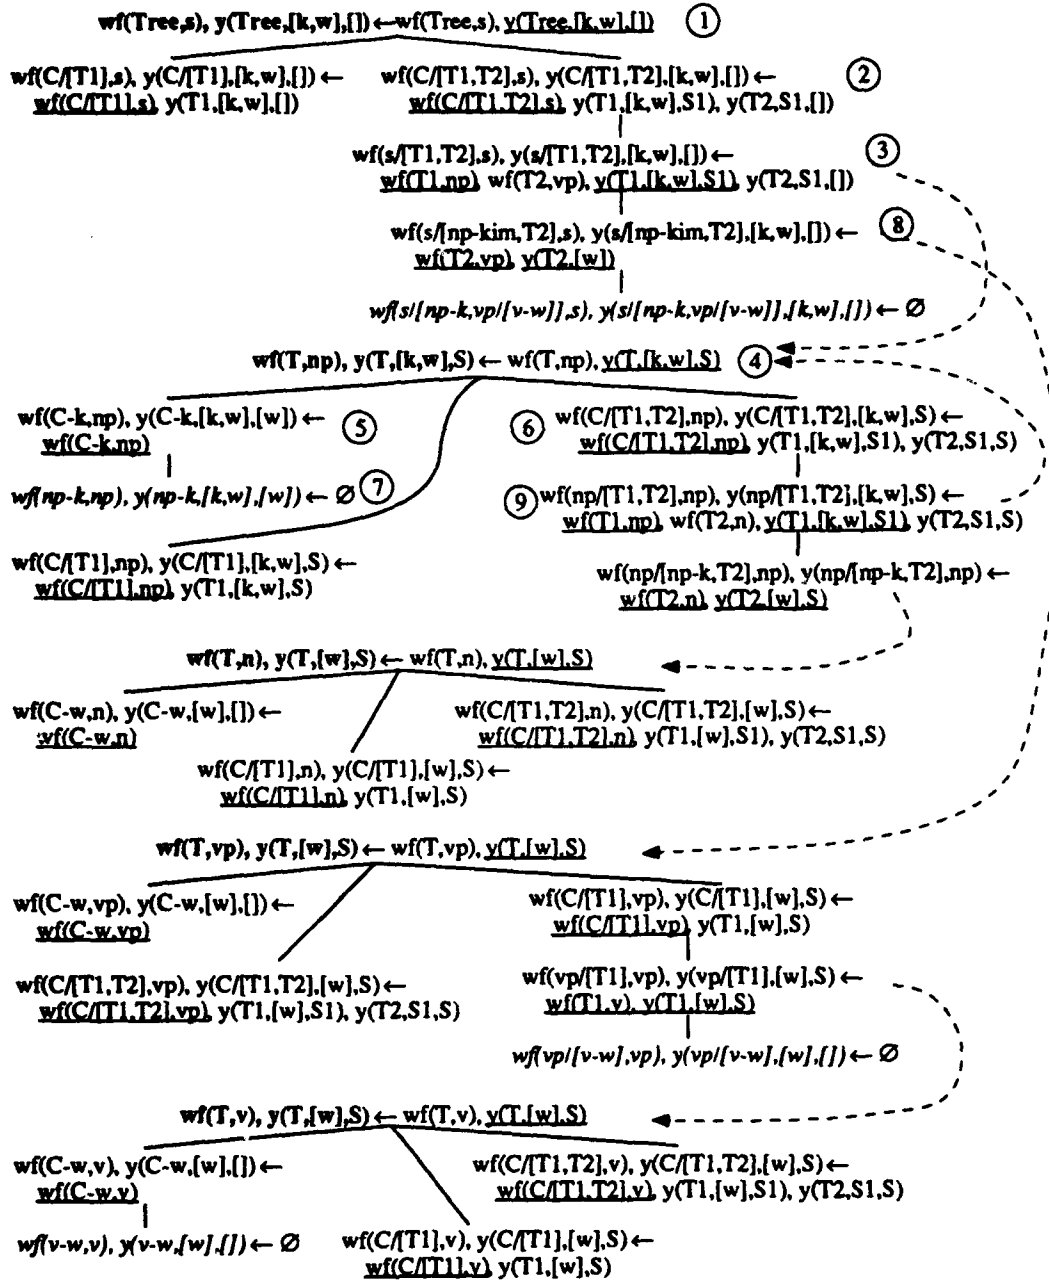 wf(Tree,s), y(Tree,[k,w],[]) ← wf(Tree,s), y(Tree,[k,w],[]) 1
wf(C/[T1],s), y(C/[T1],[k,w],[]) ←
wf(C/[T1],s), y(T1,[k,w],[])
wf(C/[T1,T2],s), y(C/[T1,T2],[k,w],[]) ← 2
wf(C/[T1,T2],s), y(T1,[k,w],S1), y(T2,S1,[])
wf(s/[T1,T2],s), y(s/[T1,T2],[k,w],[]) ← 3
wf(T1,np), wf(T2,vp), y(T1,[k,w],S1), y(T2,S1,[])
wf(s/[np-kim,T2],s), y(s/[np-kim,T2],[k,w],[]) ← 8
wf(T2,vp), y(T2,[w])
wf(s/[np-k,vp/[v-w]],s), y(s/[np-k,vp/[v-w]],[k,w],[]) ← ∅
wf(T,np), y(T,[k,w],S) ← wf(T,np), y(T,[k,w],S) 4
wf(C-k,np), y(C-k,[k,w],[w]) ← 5
wf(C-k,np)
wf(np-k,np), y(np-k,[k,w],[w]) ← ∅ 7
wf(C/[T1],np), y(C/[T1],[k,w],S) ←
wf(C/[T1],np), y(T1,[k,w],S)
6 wf(C/[T1,T2],np), y(C/[T1,T2],[k,w],S) ←
wf(C/[T1,T2],np), y(T1,[k,w],S1), y(T2,S1,S)
9 wf(np/[T1,T2],np), y(np/[T1,T2],[k,w],S) ←
wf(T1,np), wf(T2,n), y(T1,[k,w],S1), y(T2,S1,S)
wf(np/[np-k,T2],np), y(np/[np-k,T2],np) ←
wf(T2,n), y(T2,[w],S)
wf(T,n), y(T,[w],S) ← wf(T,n), y(T,[w],S)
wf(C-w,n), y(C-w,[w],[]) ←
wf(C-w,n)
wf(C/[T1,T2],n), y(C/[T1,T2],[w],S) ←
wf(C/[T1,T2],n), y(T1,[w],S1), y(T2,S1,S)
wf(C/[T1],n), y(C/[T1],[w],S) ←
wf(C/[T1],n), y(T1,[w],S)
wf(T,vp), y(T,[w],S) ← wf(T,vp), y(T,[w],S)
wf(C-w,vp), y(C-w,[w],[]) ←
wf(C-w,vp)
wf(C/[T1],vp), y(C/[T1],[w],S) ←
wf(C/[T1],vp), y(T1,[w],S)
wf(C/[T1,T2],vp), y(C/[T1,T2],[w],S) ←
wf(C/[T1,T2],vp), y(T1,[w],S1), y(T2,S1,S)
wf(vp/[T1],vp), y(vp/[T1],[w],S) ←
wf(T1,v), y(T1,[w],S)
wf(vp/[v-w],vp), y(vp/[v-w],[w],[]) ← ∅
wf(T,v), y(T,[w],S) ← wf(T,v), y(T,[w],S)
wf(C-w,v), y(C-w,[w],[]) ←
wf(C-w,v)
wf(C/[T1,T2],v), y(C/[T1,T2],[w],S) ←
wf(C/[T1,T2],v), y(T1,[w],S1), y(T2,S1,S)
wf(v-w,v), y(v-w,[w],[]) ← ∅
wf(C/[T1],v), y(C/[T1],[w],S) ←
wf(C/[T1],v), y(T1,[w],S)